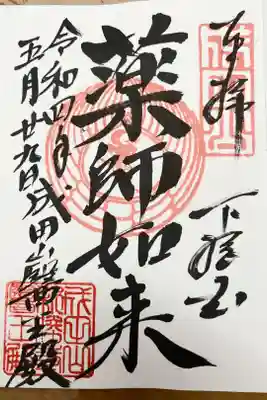 奉拝
下総国
薬師如来
令和四年
五月廿九日
成田山醫王殿